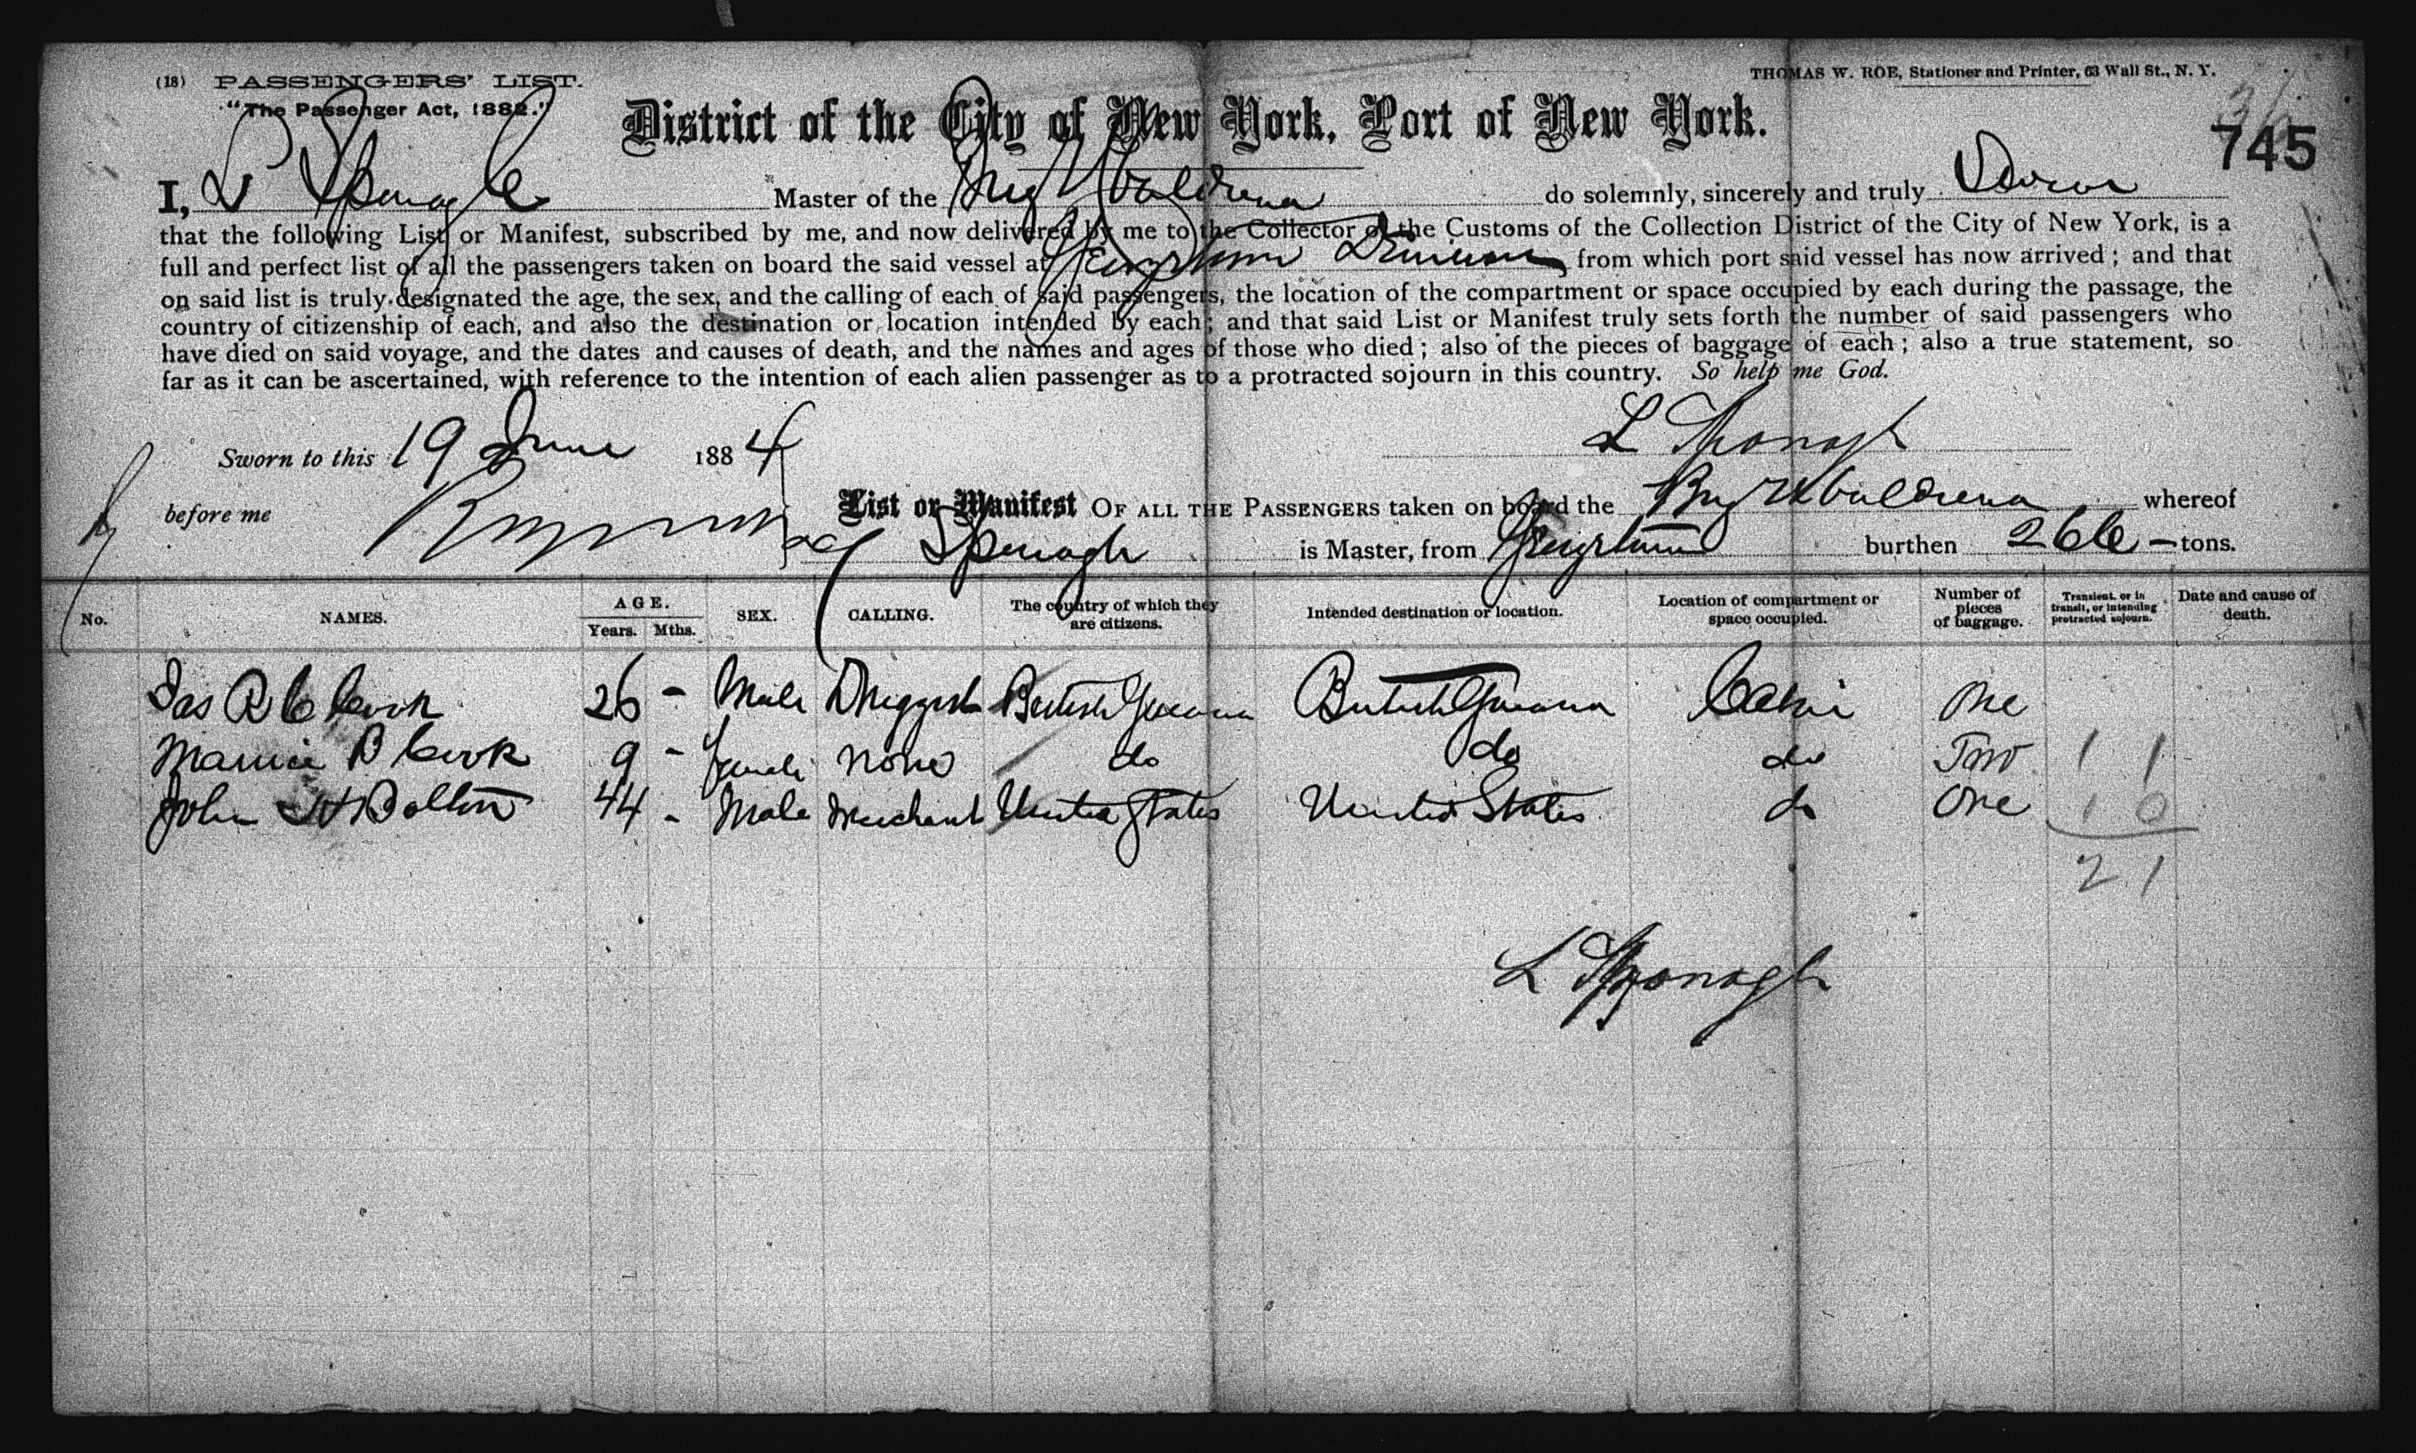 (18) PASSENGERS' LIST.
THOMAS W. ROE, Stationer and Printer, 63 Wall St., N. Y.
"The Passenger Act, 1882."
District of the City of New York, Port of New York.
745
I, L Master of the do solemnly, sincerely and truly Swear
that the following List or Manifest, subscribed by me, and now delivered by me to the Collector of the Customs of the Collection District of the City of New York, is a
full and perfect list of all the passengers taken on board the said vessel at from which port said vessel has now arrived; and that
on said list is truly designated the age, the sex, and the calling of each of said passengers, the location of the compartment or space occupied by each during the passage, the
country of citizenship of each, and also the destination or location intended by each; and that said List or Manifest truly sets forth the number of said passengers who
have died on said voyage, and the dates and causes of death, and the names and ages of those who died; also of the pieces of baggage of each; also a true statement, so
far as it can be ascertained, with reference to the intention of each alien passenger as to a protracted sojourn in this country. So help me God.
Sworn to this 19 June 1884
L
before me
List or Manifest OF ALL THE PASSENGERS taken on board the Brig whereof
is Master, from burthen 266 - tons.
No. NAMES. AGE. Years. Mths. SEX. CALLING. The country of which they are citizens. Intended destination or location. Location of compartment or space occupied. Number of pieces of baggage. Transient, or in transit, or intending protracted sojourn. Date and cause of death.
Jas R C Cook 26 - Male Druggist British Guiana British Guiana Cabin One
B Cook 9 - female none do do do Two 1 1
John H Bolton 44 - Male Merchant United States United States do One 1 0
2 1
L